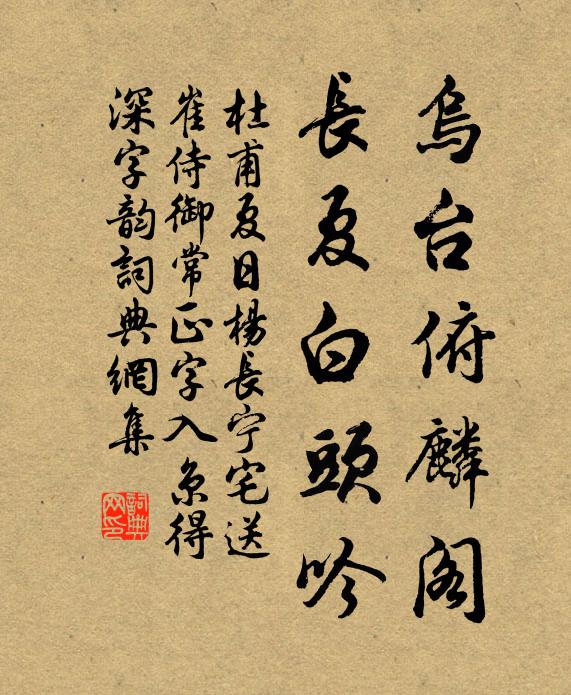 烏台俯麟阁
長夏白頭吟
杜甫夏日楊長宁宅送
崔侍御常正字入京得
深字韵詞典網集
詞典网印